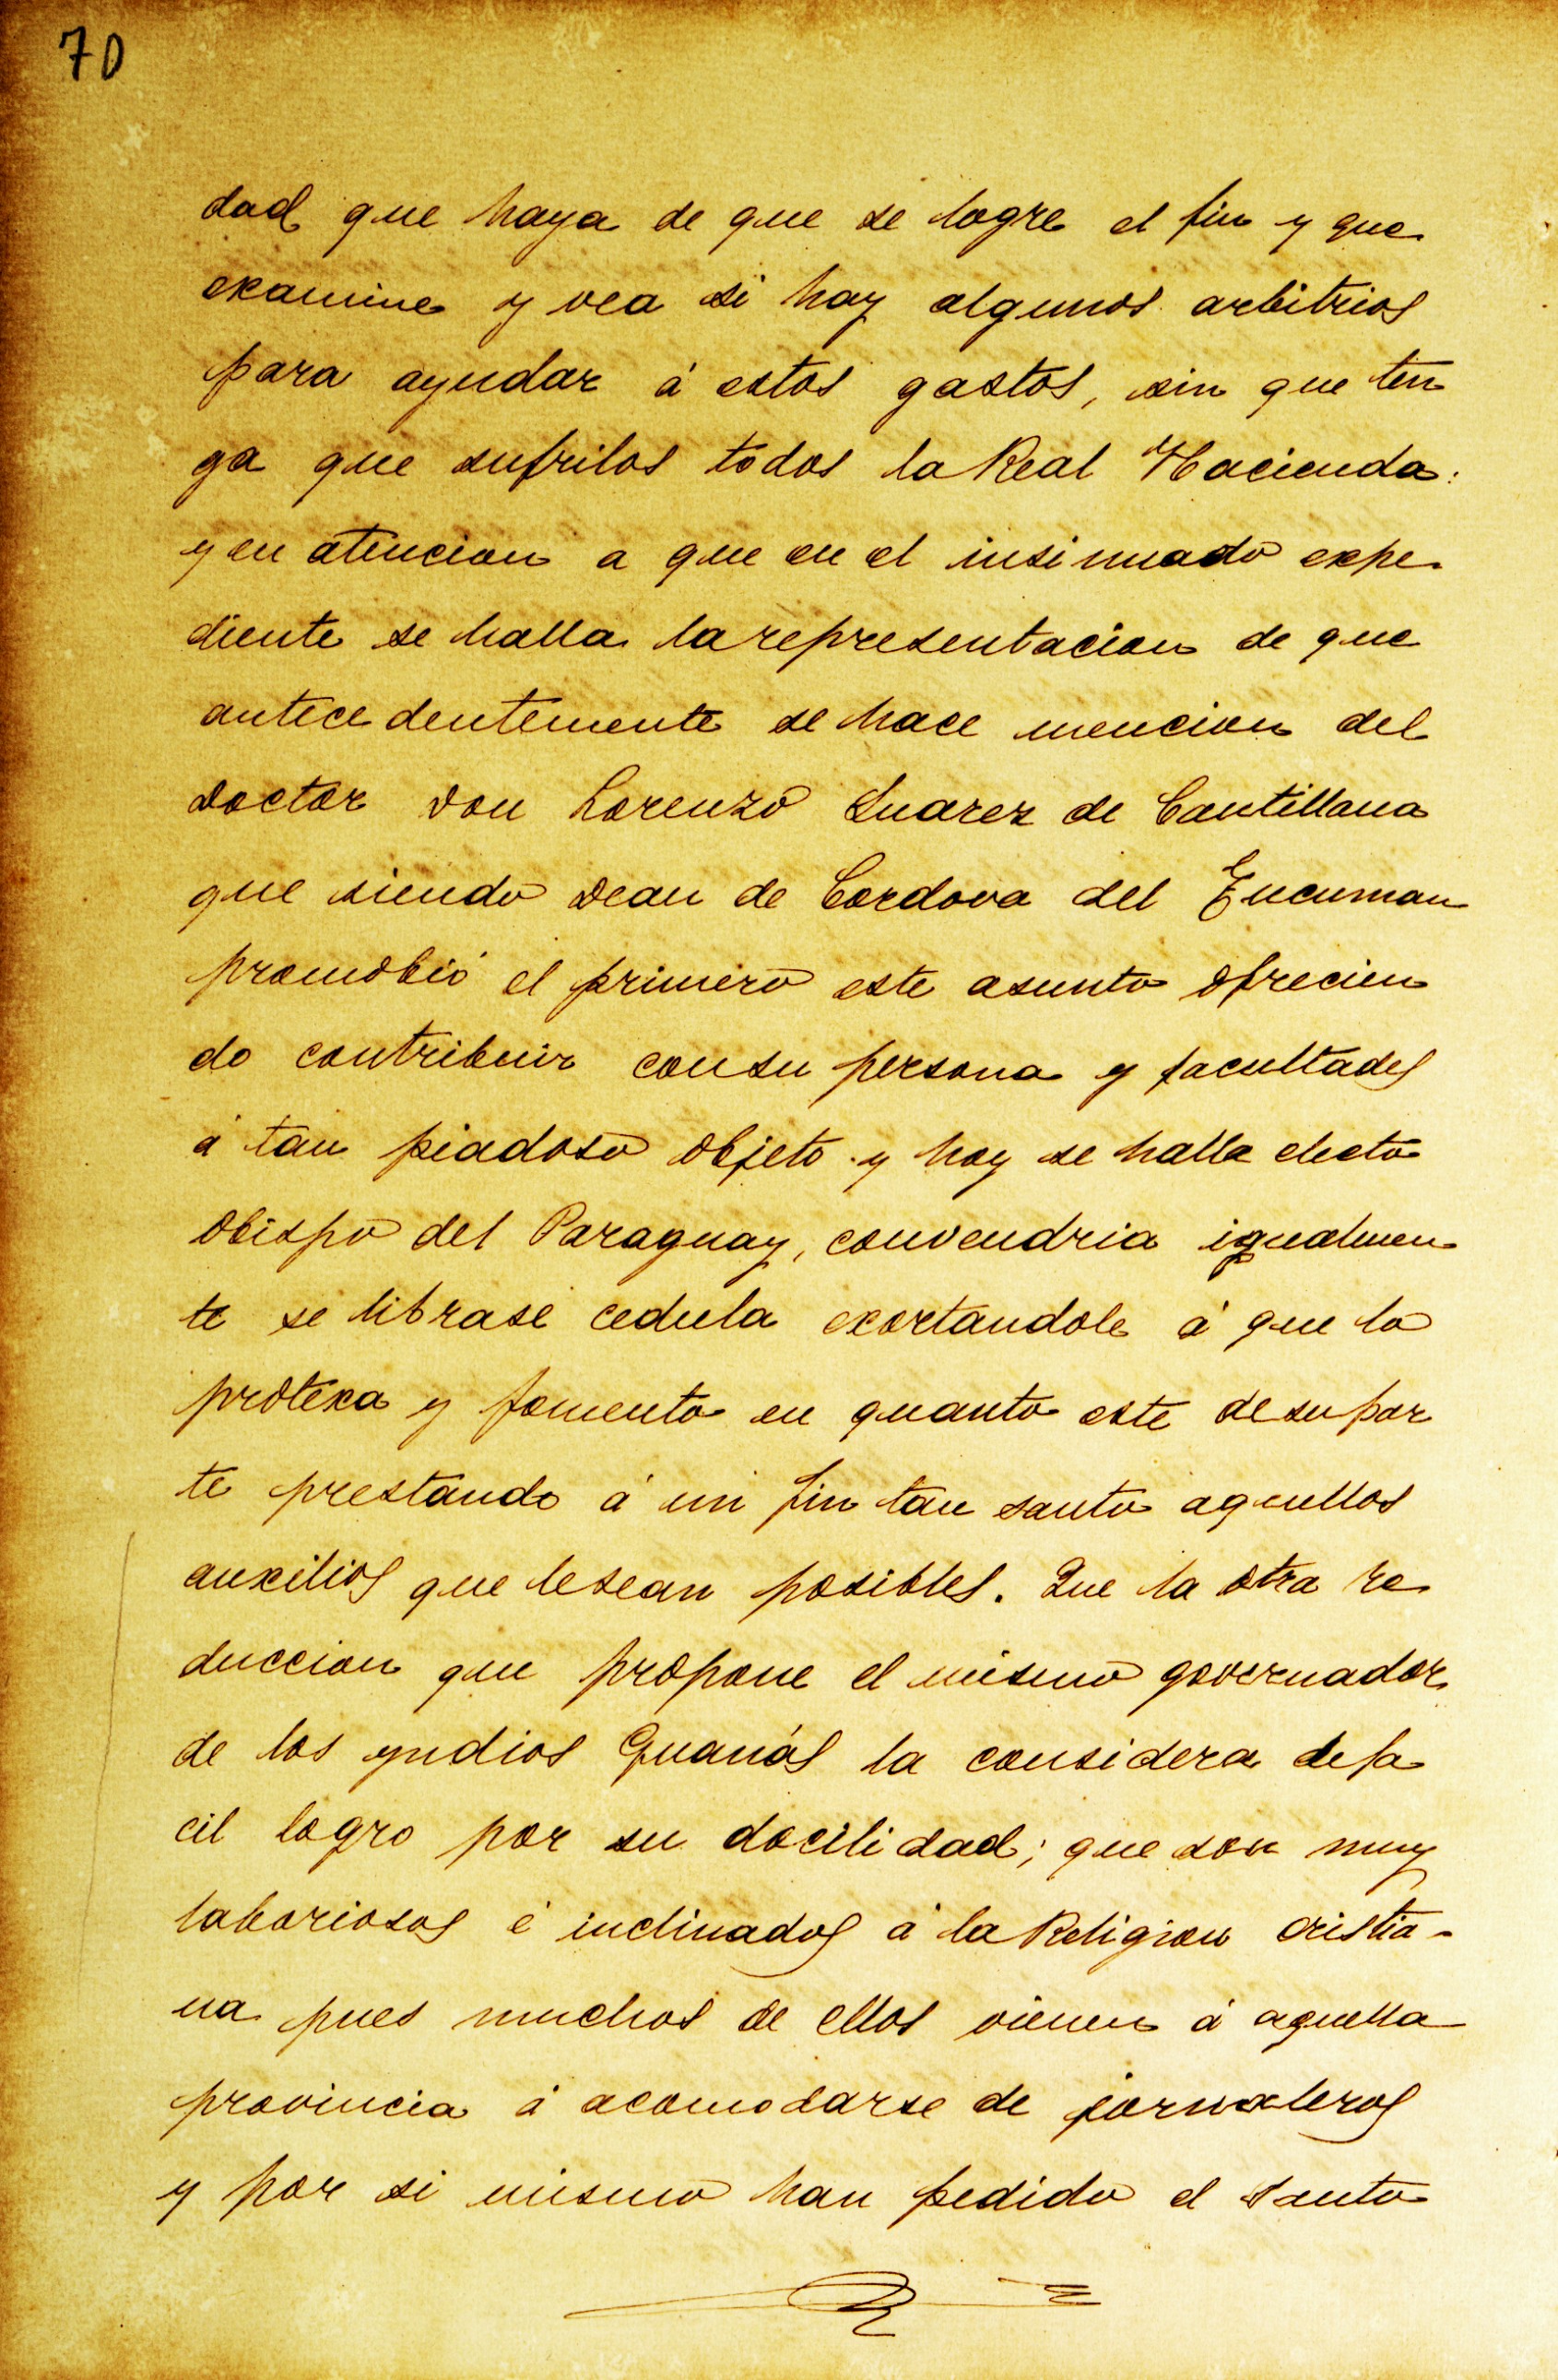 70
dad que haya de que se logre el fin y que
examine y vea si hay algunos arbitrios
para ayudar á estos gastos, sin que ten
ga que sufrilos todos la Real Hacienda:
y en atencion a que en el insinuado expe-
diente se halla la representacion de que
antecedentemente se hace mencion del
Doctor Don Lorenzo Suarez de Cantillana
que siendo Dean de Cordova del Tucuman
promobió el primero este asunto ofrecien
do contribuir con su persona y facultades
á tan piadoso objeto y hoy se halla electo
Obispo del Paraguay, convendria igualmen
te se librase cedula exortandole á que lo
protexa y fomento en quanto este de su par
te prestando á un fin tan santo aquellos
auxilios que le sean posibles. Que la otra re
duccion que propone el mismo governador
de los yndios Guanás la considera de fa
cil logro por su docilidad; que son muy
laboriosos é inclinados á la Religion cristia-
na pues muchos de ellos vienen á aquella
provincia á acomodarse de jornaleros
y por si mismo han pedido el Santo